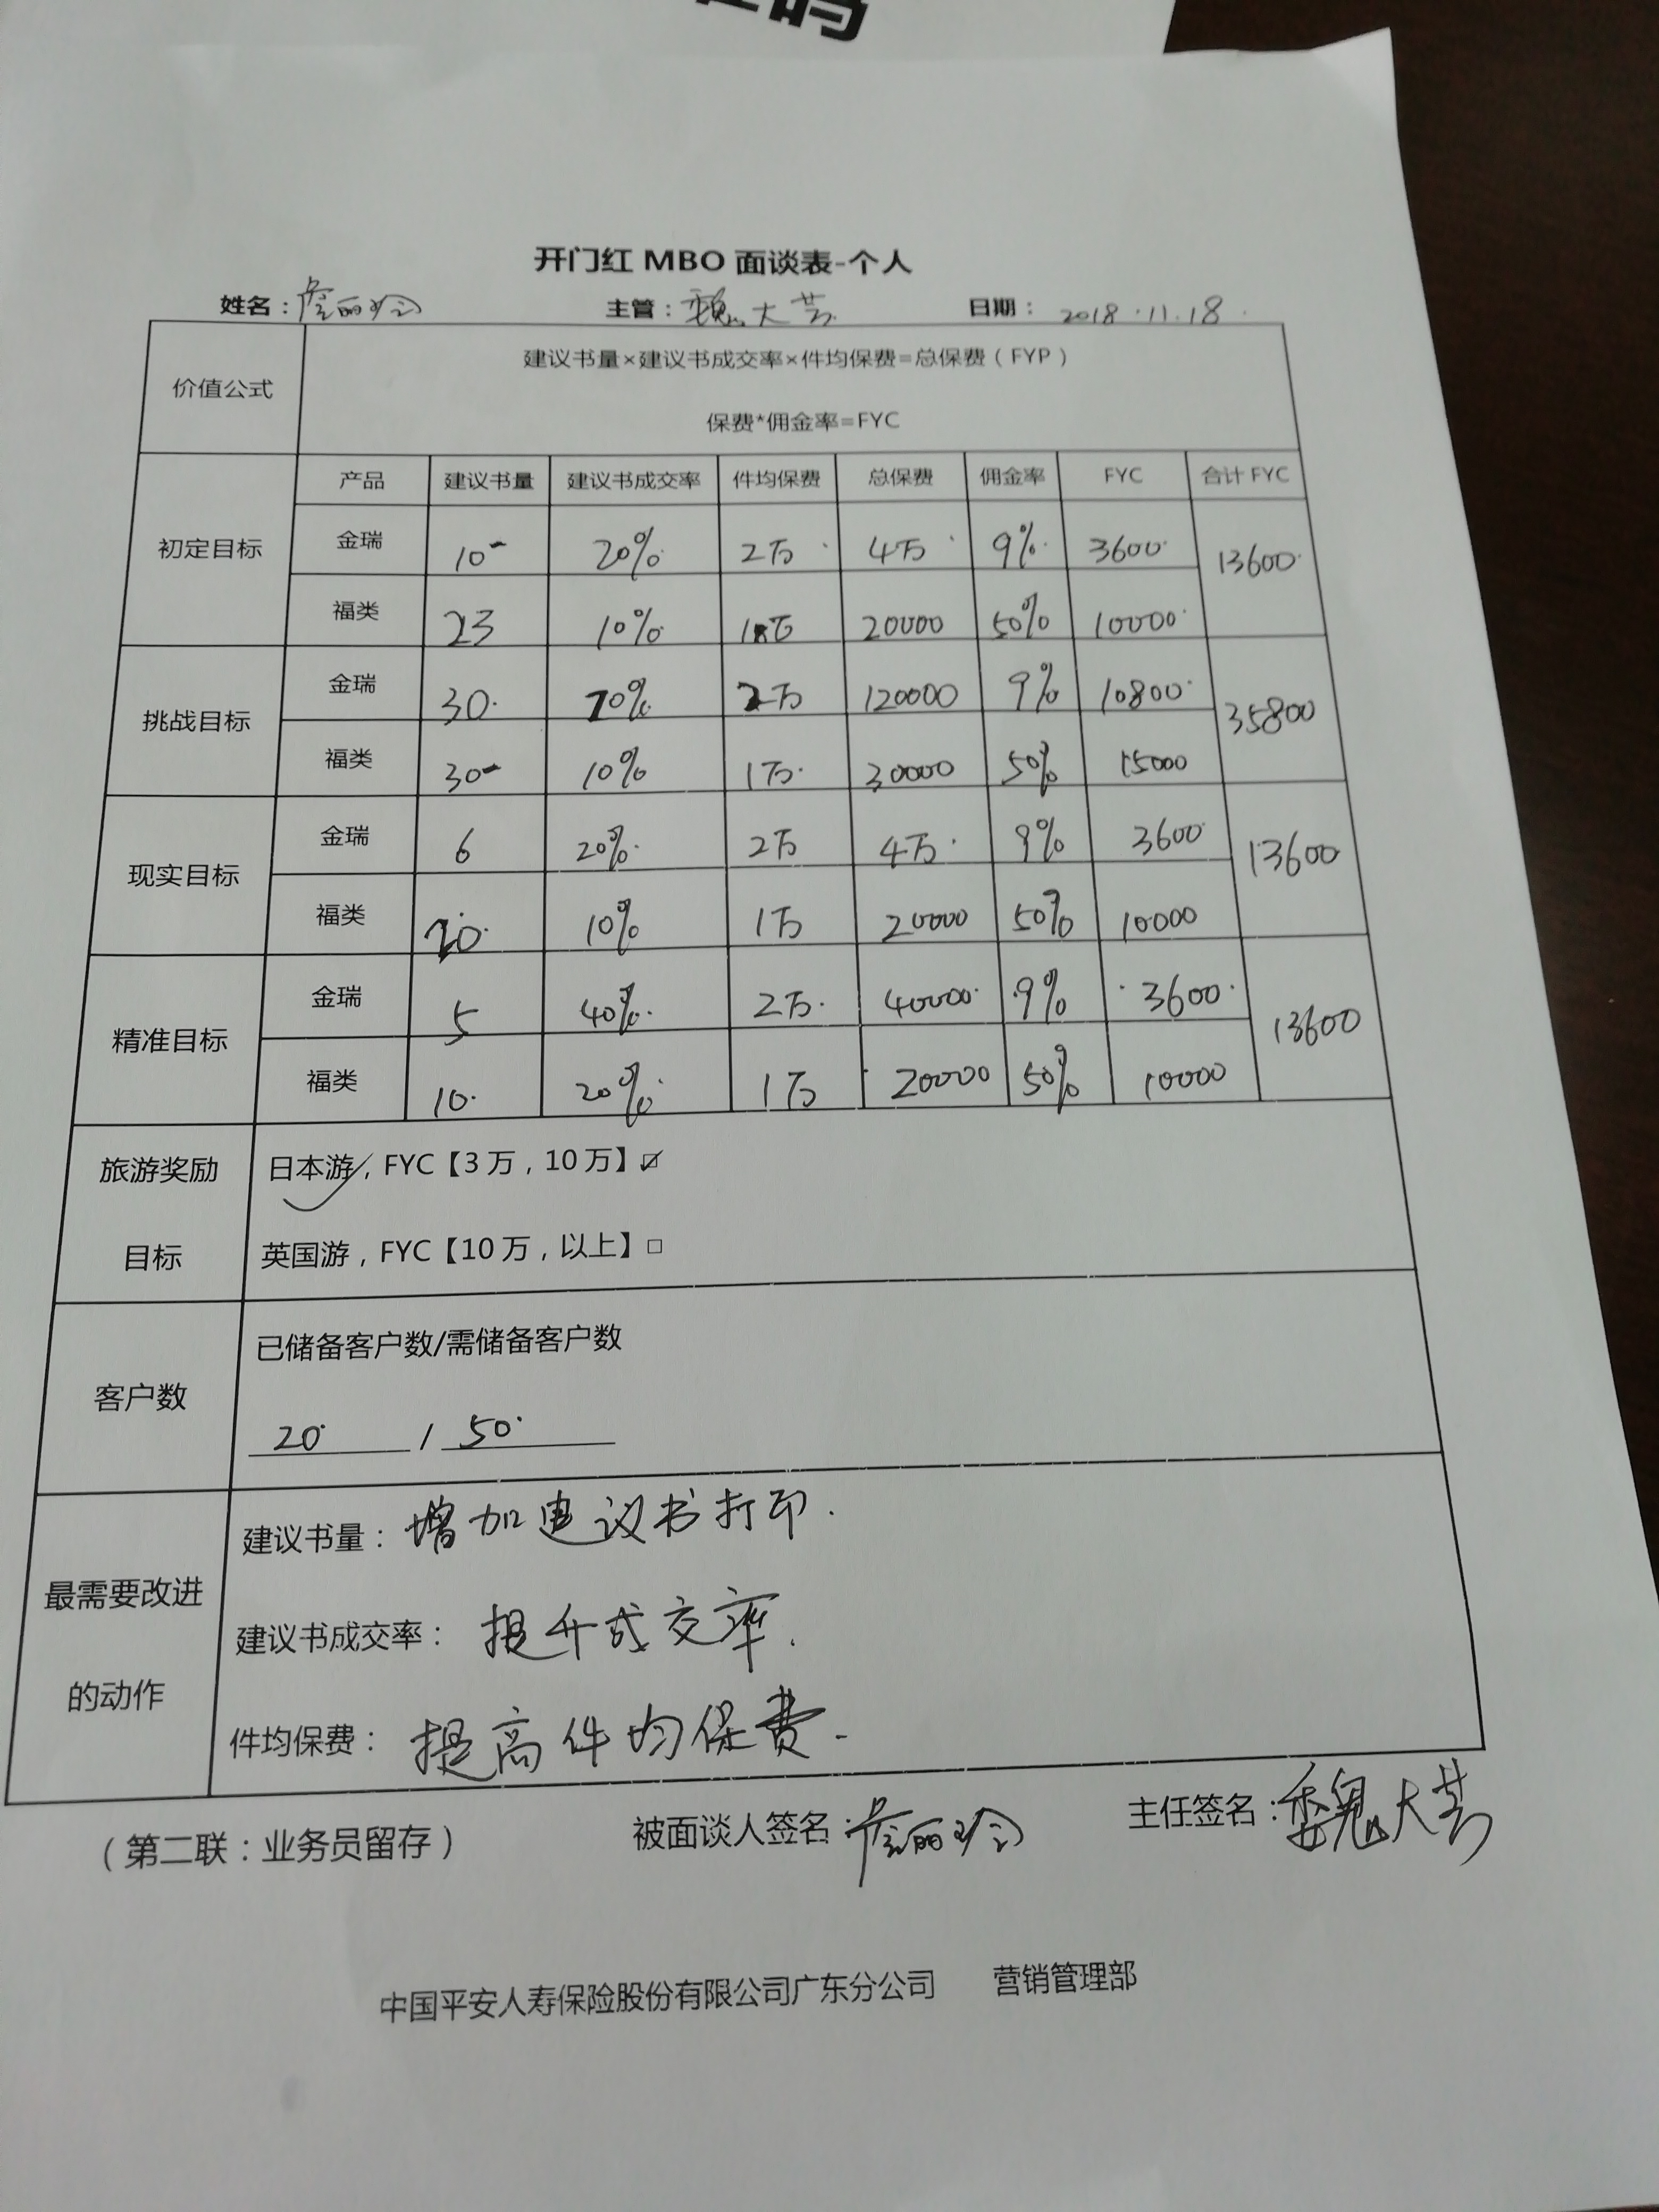 码
开门红 MBO 面谈表-个人
姓名： 主管：魏大芸 日期：2018.11.18.
价值公式
建议书量×建议书成交率×件均保费=总保费（FYP）
保费*佣金率=FYC
产品 建议书量 建议书成交率 件均保费 总保费 佣金率 FYC 合计 FYC
初定目标
金瑞 10 20% 2万 4万 9% 3600 13600
福类 23 10% 1万 20000 50% 10000
挑战目标
金瑞 30 20% 2万 120000 9% 10800 35800
福类 30 10% 1万 30000 50% 15000
现实目标
金瑞 6 20% 2万 4万 9% 3600 13600
福类 20 10% 1万 20000 50% 10000
精准目标
金瑞 5 40% 2万 40000 9% 3600 13600
福类 10 20% 1万 20000 50% 10000
旅游奖励
目标
日本游，FYC【3 万，10 万】☑
英国游，FYC【10 万，以上】□
客户数
已储备客户数/需储备客户数
20 / 50
最需要改进
的动作
建议书量：增加建议书打印.
建议书成交率：提升成交率.
件均保费：提高件均保费.
（第二联：业务员留存） 被面谈人签名： 主任签名：魏大芸
中国平安人寿保险股份有限公司广东分公司 营销管理部